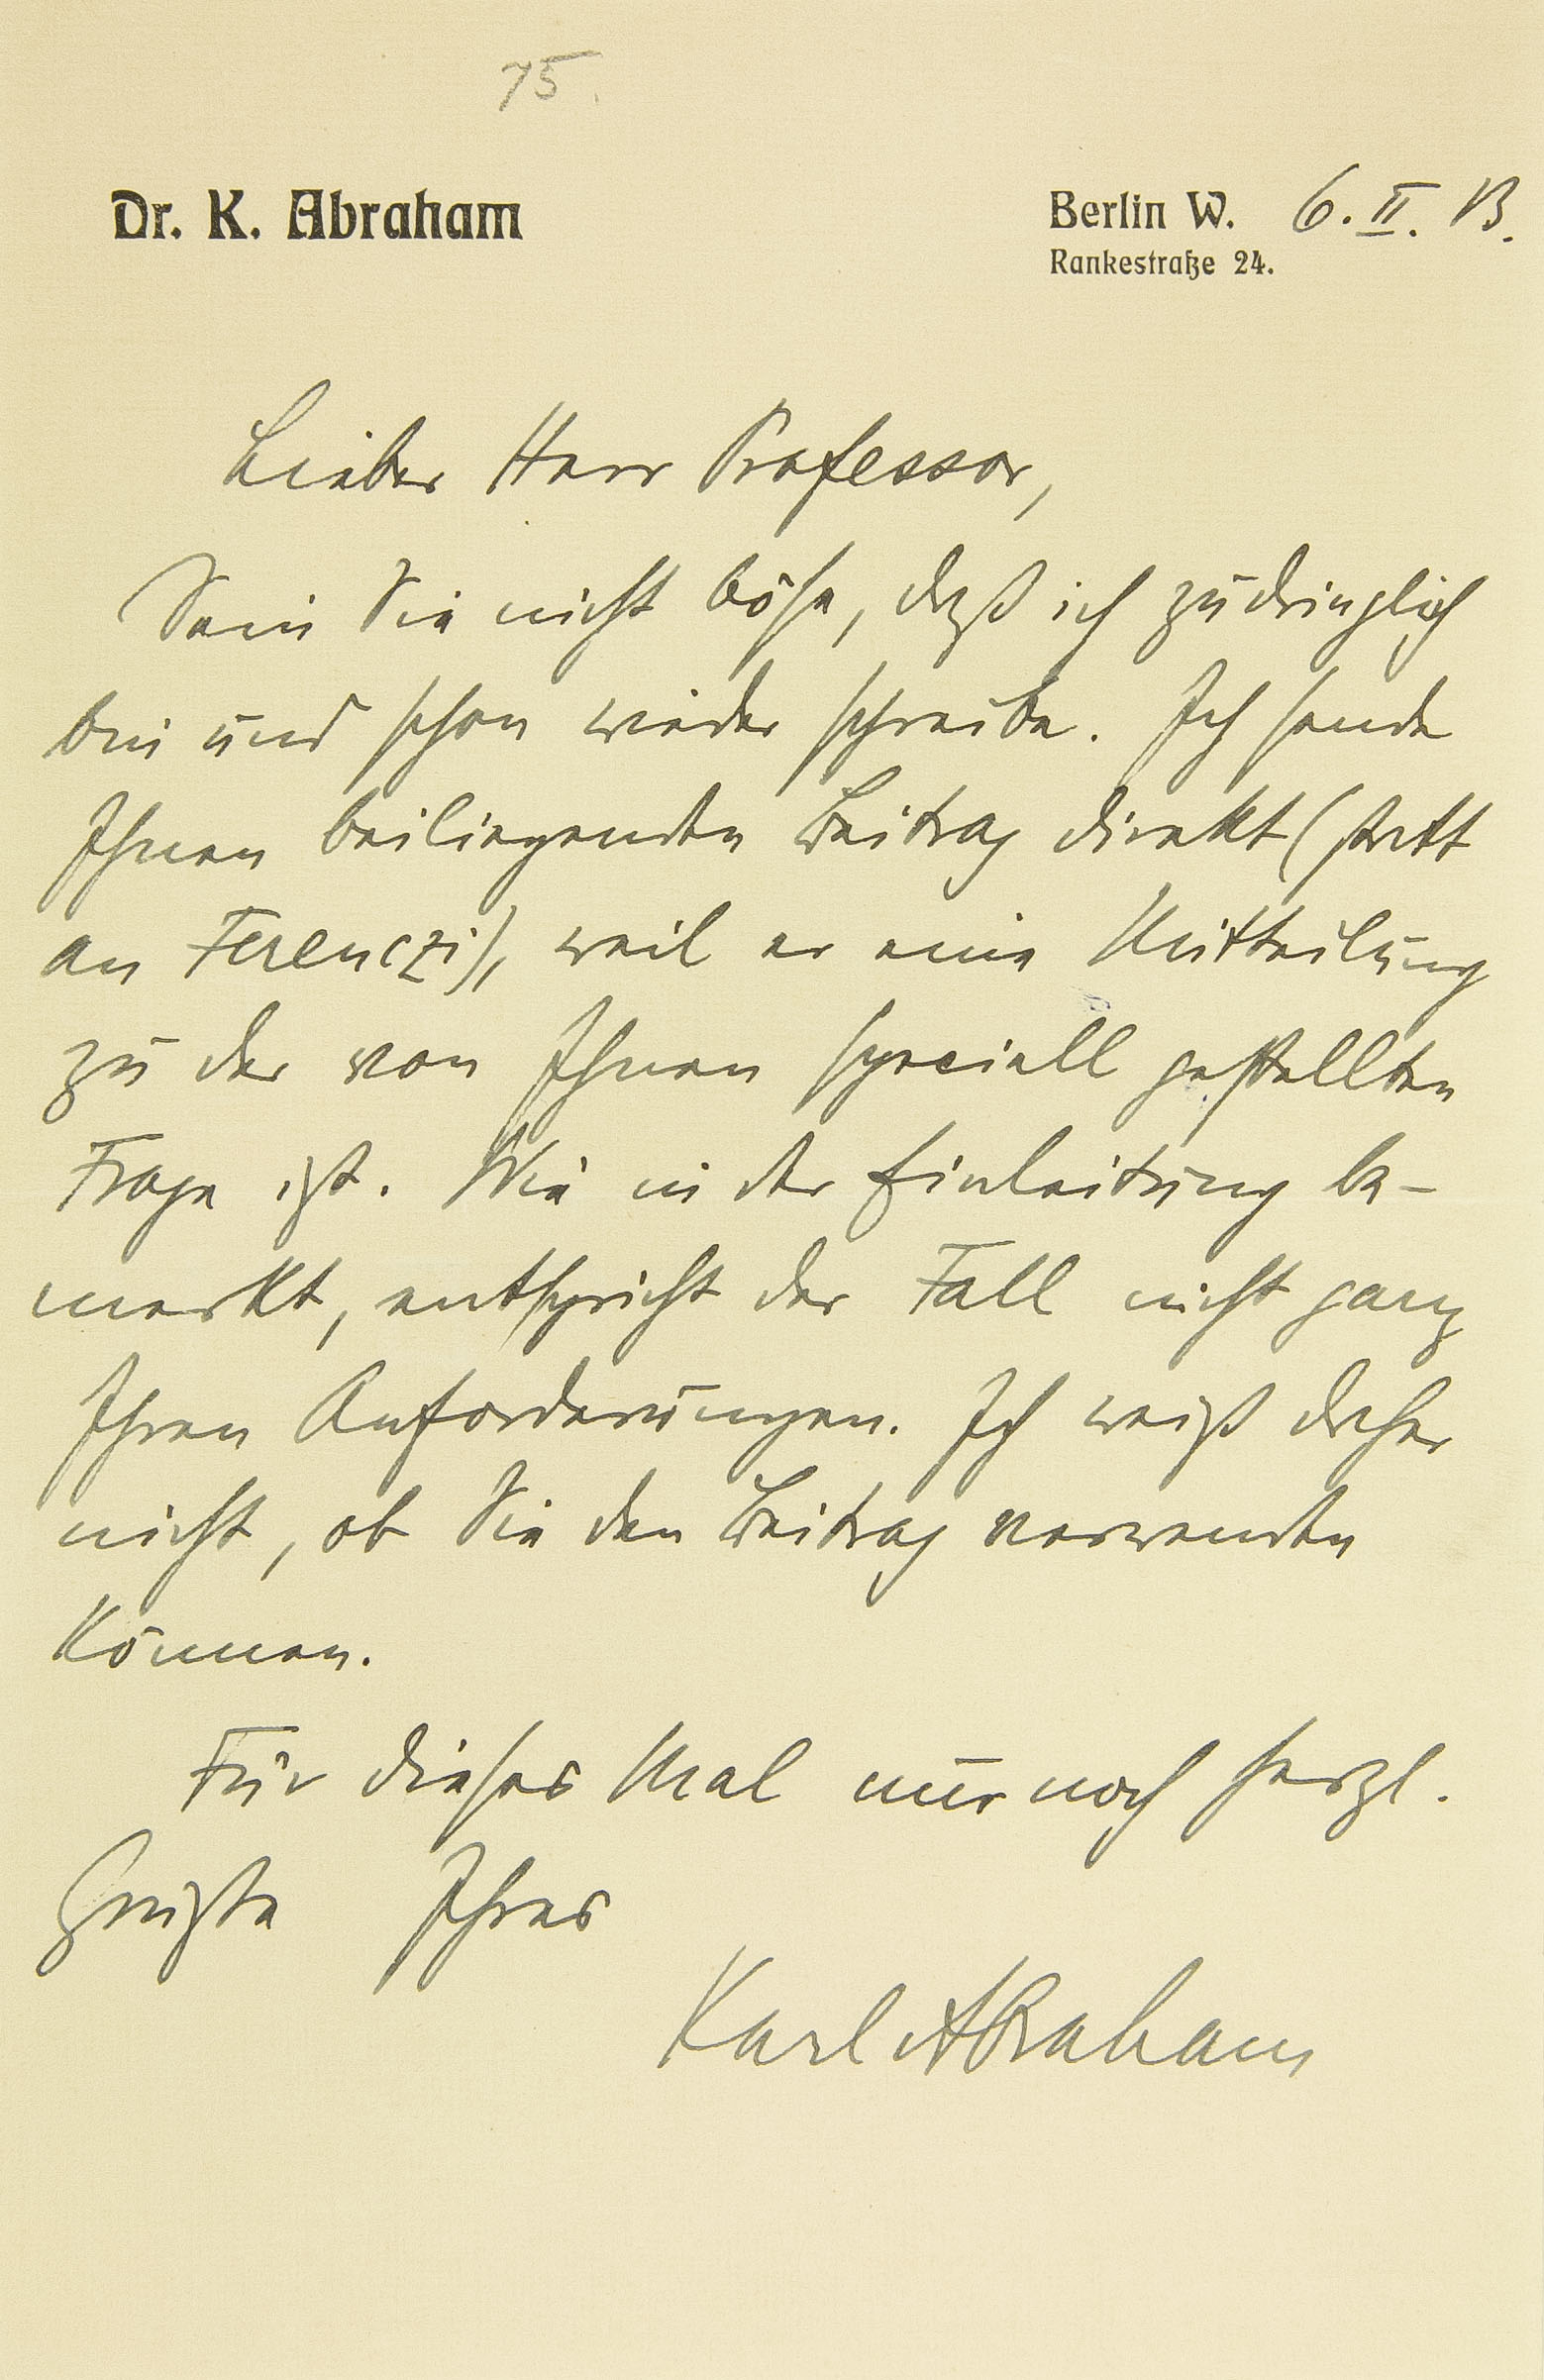 75.
Dr. K. Abraham
Berlin W. 6. II. 13.
Rankestraße 24.
Lieber Herr Professor,
Sein Sie nicht böse, daß ich zudringlich
bin und schon wieder schreibe. Ich sende
Ihnen beiliegenden Beitrag direkt (statt
an Ferenczi), weil er eine Mitteilung
zu der von Ihnen speciell gestellten
Frage ist. Wie in der Einleitung be-
merkt, entspricht der Fall nicht ganz
Ihren Anforderungen. Ich weiß daher
nicht, ob Sie den Beitrag verwenden
können.
Für dieses Mal nur noch herzl.
Grüße Ihres
Karl Abraham